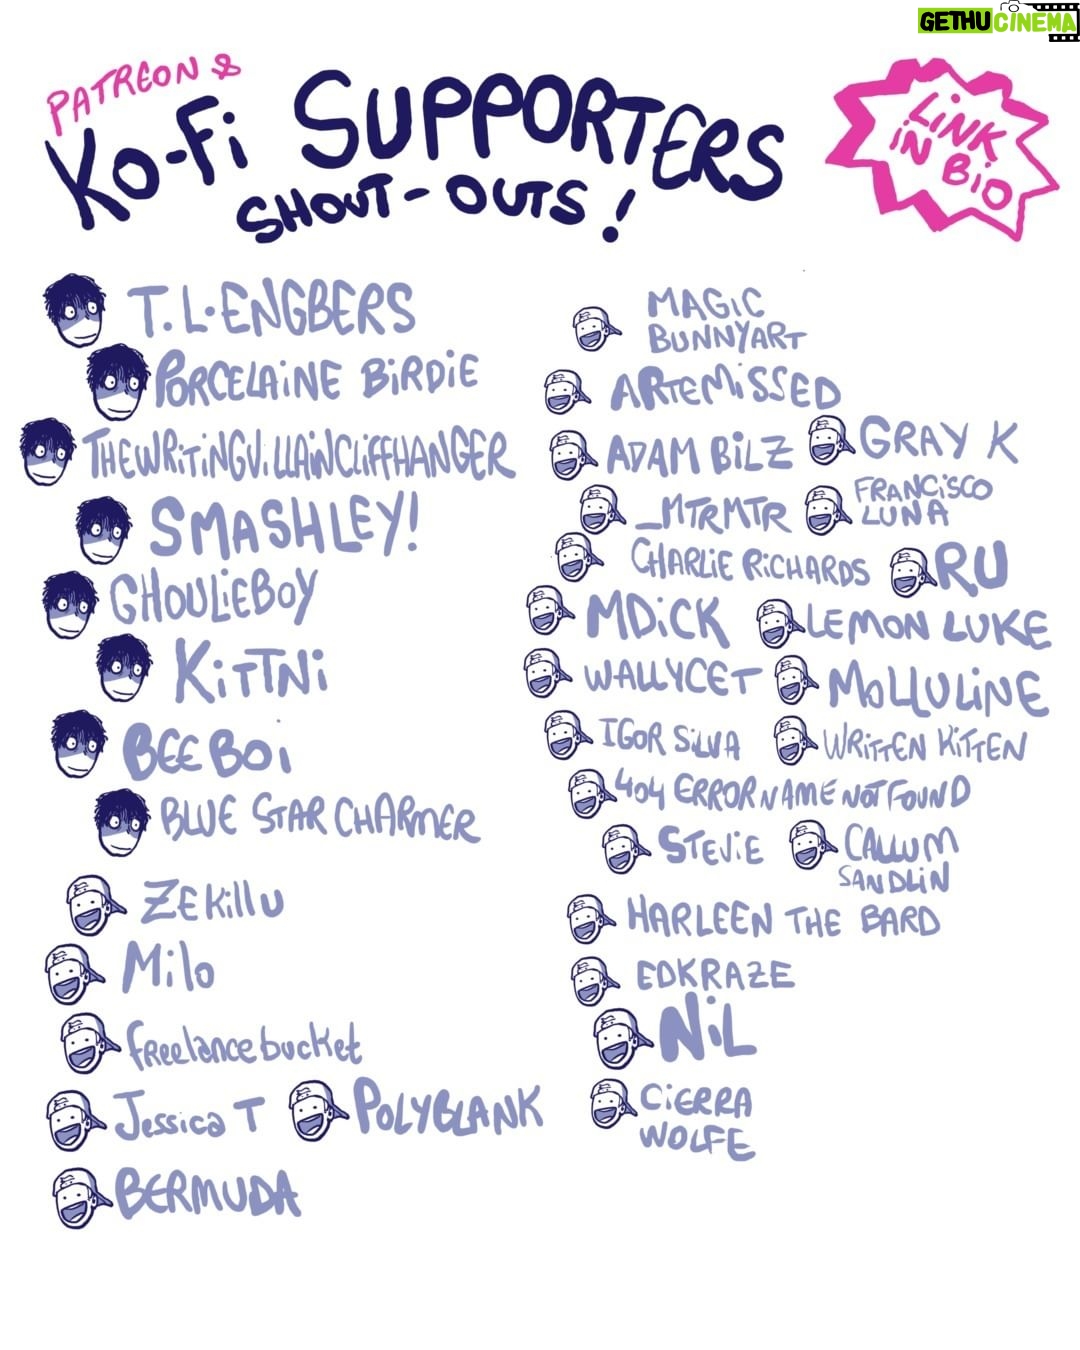 GETHUCINEMA
PATREON &
KO-Fi SUPPORTERS
SHOUT-OUTS!
LiNK
iN BiO
T.L.ENGBERS
PORCELAiNE BiRDiE
THEWRiTiNGViLLAiNCLiFFHANGER
SMASHLEY!
GHOULiEBOY
KiTTNi
BEE BOi
BLUE STAR CHARMER
ZEKillU
Milo
freelancebucket
Jessica T
POLYBLANK
BERMUDA
MAGiC
BUNNYART
ARTEMiSSED
ADAM BiLZ
GRAY K
_MTRMTR
FRANCiSCO
LUNA
CHARLiE RiCHARDS
RU
MDiCK
LEMON LUKE
WALLYCET
MOLLULiNE
IGOR SiLVA
WRiTTEN KiTTEN
404 ERROR NAME NOT FOUND
STEViE
CALLUM
SANDLiN
HARLEEN THE BARD
EDKRAZE
NiL
CiERRA
WOLFE